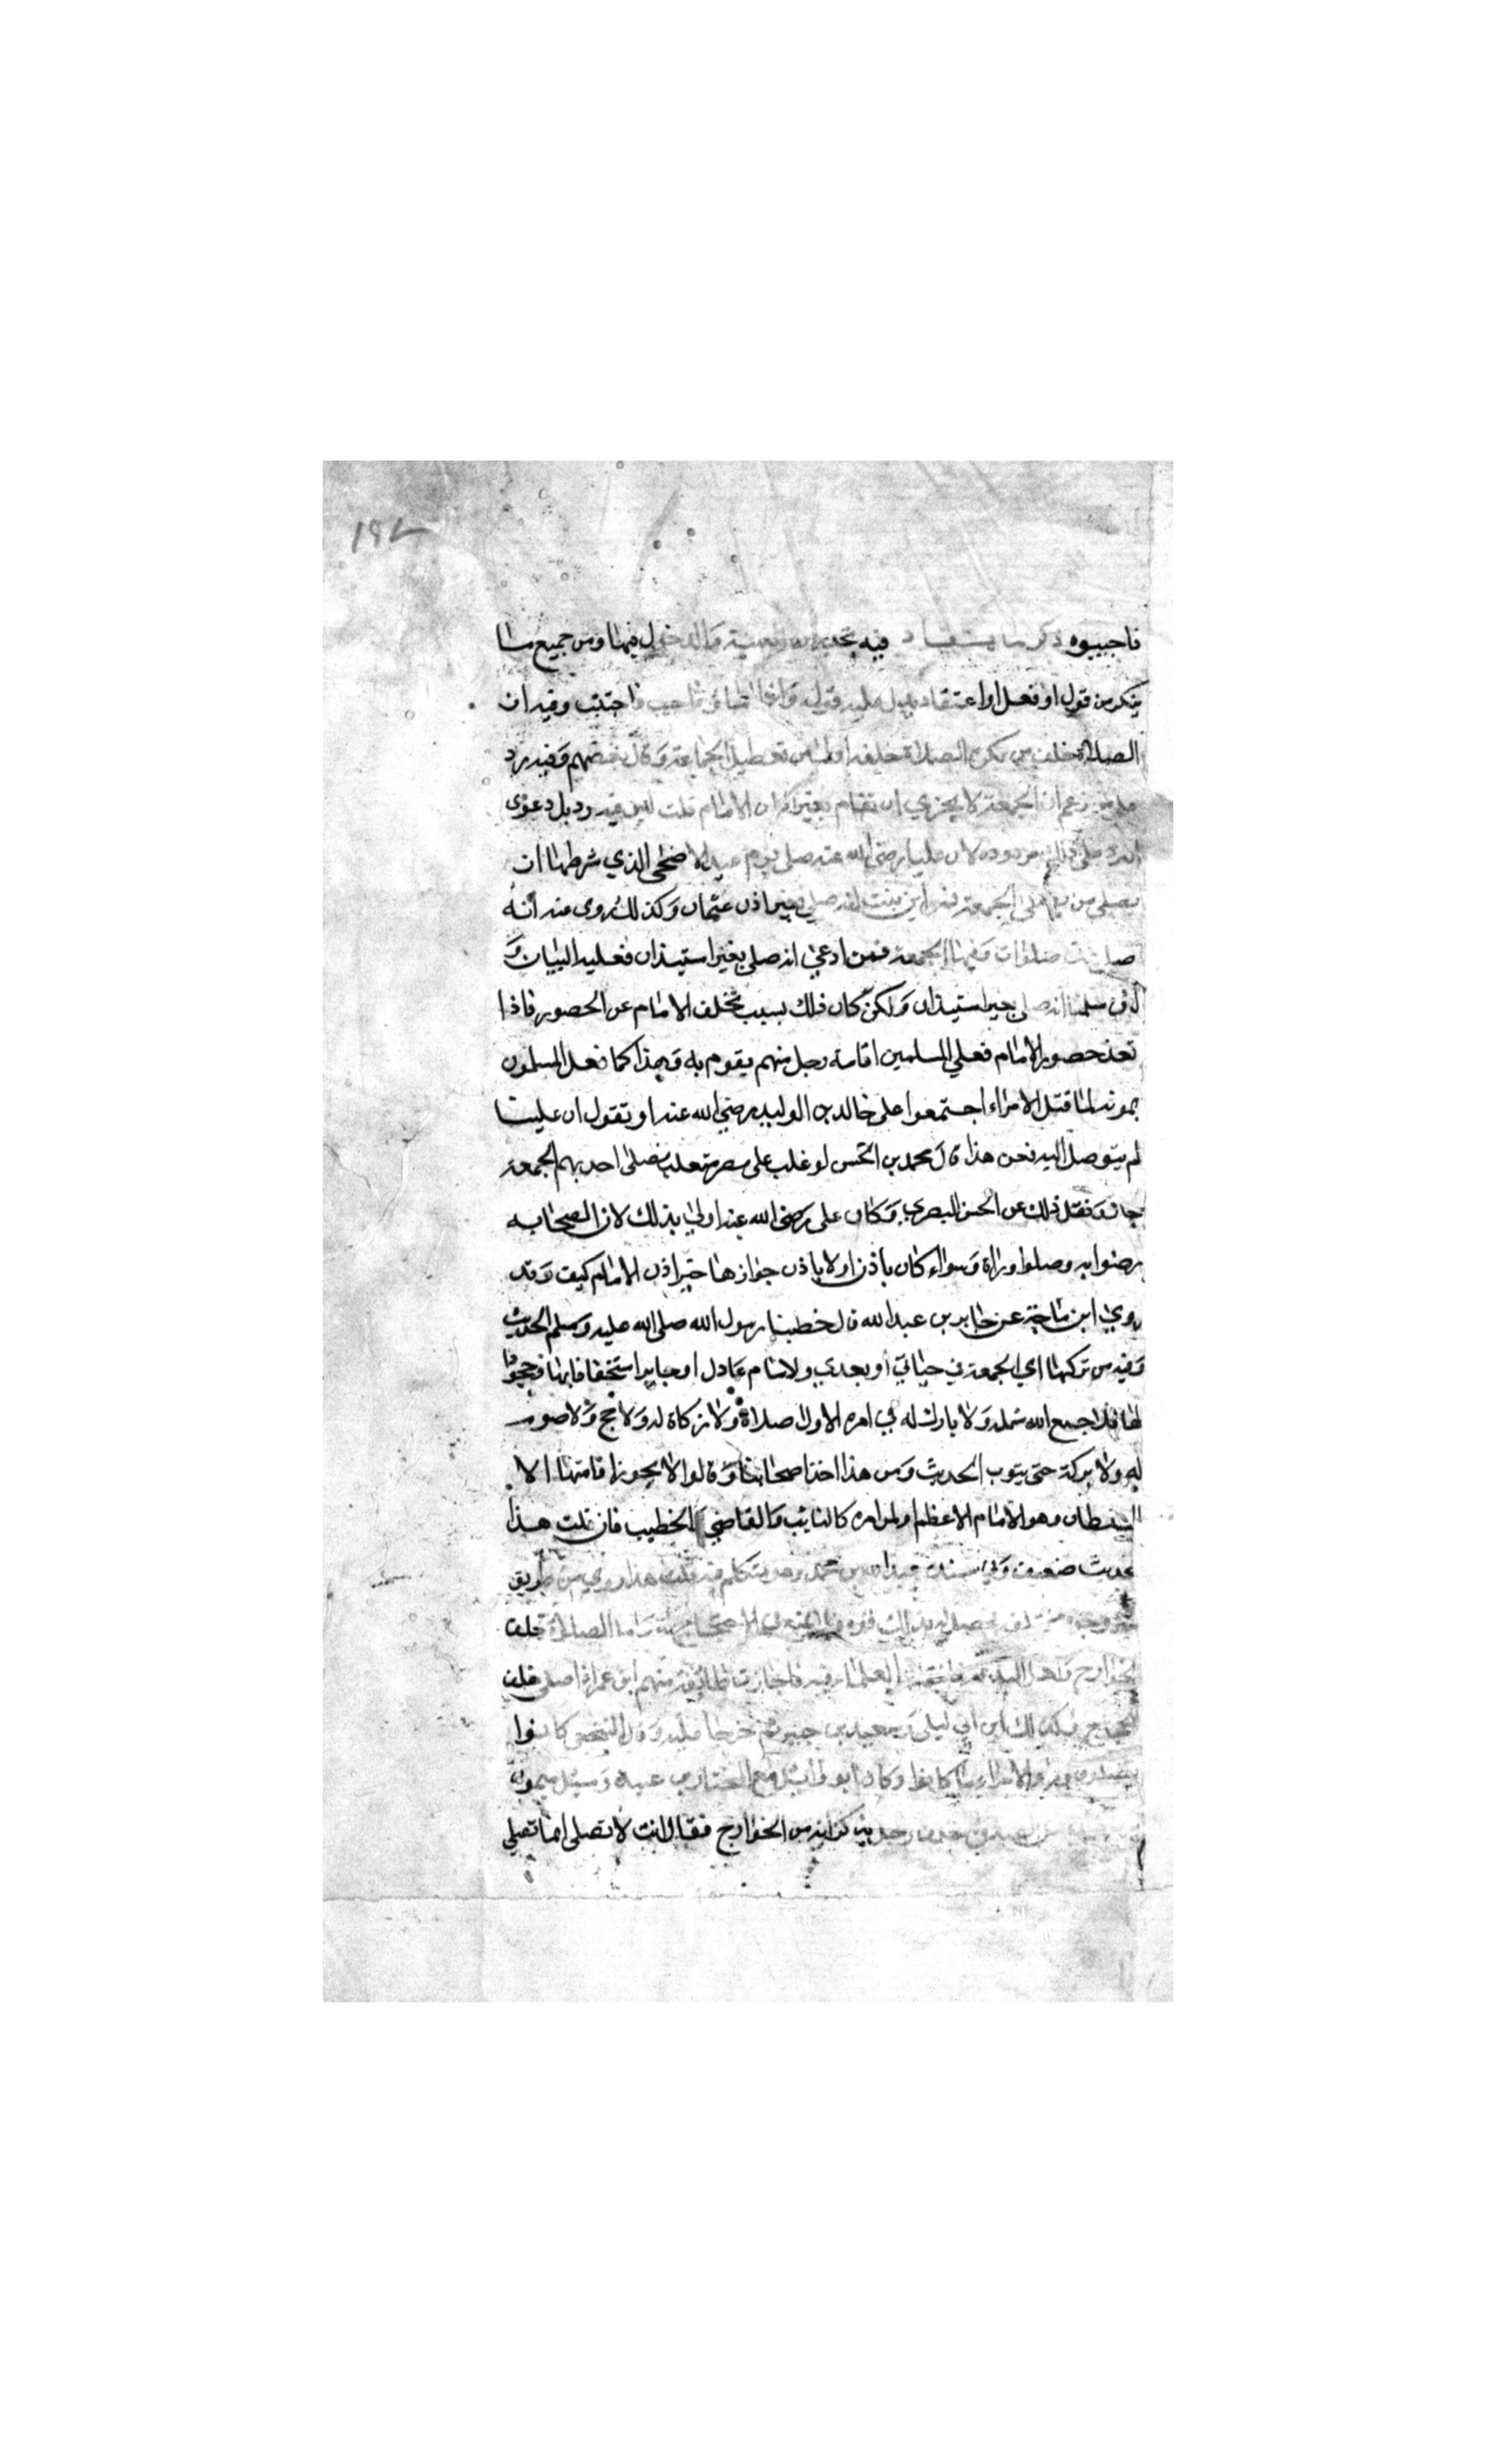 ١٩٢
فاجيبوه ذكر ما يستفاد فيه تحذير من الفتنة والدخول فيها ومن جميع ما
ينكر من قول او فعل او اعتقاد يدل عليه قوله واذا اساؤا فاجتنب وفيه ان
الصلاة خلف من تكره الصلاة خلفه اولى من تعطيل الجماعة وقال بعضهم وفيه رد
على من زعم ان الجمعة لا يجزي ان تقام بغير اذن الامام قلت ليس فيه رد بل دعوى
الرد على ذلك مردودة لان عليا رضي الله عنه صلى يوم عيد الاضحى الذي شرطها ان
يصلي من يصلي الجمعة فمن اين ثبت انه صلى بغير اذن عثمان وكذلك روى عنه انه
صلى عدة صلوات وفيها الجمعة فمن ادعى انه صلى بغير استيذان فعليه البيان و
لئن سلمنا انه صلى بغير استيذان ولكن كان ذلك بسبب تخلف الامام عن الحضور فاذا
تعذر حضور الامام فعلي المسلمين اقامة رجل منهم يقوم به وهذا كما فعل المسلمون
بموته لما قتل الامراء اجتمعوا على خالد بن الوليد رضي الله عنه او تقول ان علينا
لم يتوصل اليه فحن هذا قال محمد بن الحسن لو غلب على مصر متغلب فصلى احد بهم الجمعة
جاز ونقل ذلك عن الحسن البصري وكان على رضي الله عنه اولي بذلك لان الصحابه
رضوا به وصلوا وراه وسواء كان باذن او لا باذن جوازها بغير اذن الامام كيف وقد
روي ابن ماجة عن جابر بن عبد الله قال خطبنا رسول الله صلى الله عليه وسلم الحديث
وفيه من تركها اي الجمعة في حياتي او بعدي وله امام عادل او جاير استخفافا بها وجحودا
لها فلا جمع الله شمله ولا بارك له في امره الا ولا صلاة ولا زكاة له ولا حج ولا صوم
له ولا بركة حتى يتوب الحديث ومن هذا اخذ اصحابنا وقالوا لا يجوز اقامتها الا
السلطان وهو الامام الاعظم او لمن امره كالنايب والقاضي والخطيب فان قلت هذا
حديث ضعيف وفي سنده عبد الله بن محمد وهو يتكلم فيه قلت هذا روي من طريق
ووجوه مختلفة فحصل له بذلك قوة فلا يمنع من الاحتجاج به واما الصلاة خلف
الخوارج واهل البدع فاختلف العلماء فيه فاجازت طائفة منهم ابن عمر اذ صلى خلف
الحجاج وكذلك ابن ابي ليلى وسعيد بن جبير ثم خرجا عليه وقال النخعي كانوا
يصلون وراء الامراء ما كانوا وكان ابو وائل يجمع مع المختار بن عبيد وسئل ميمون
عن الصلاة خلف رجل يذكر انه من الخوارج فقال انت لا تصلى له انما تصلي